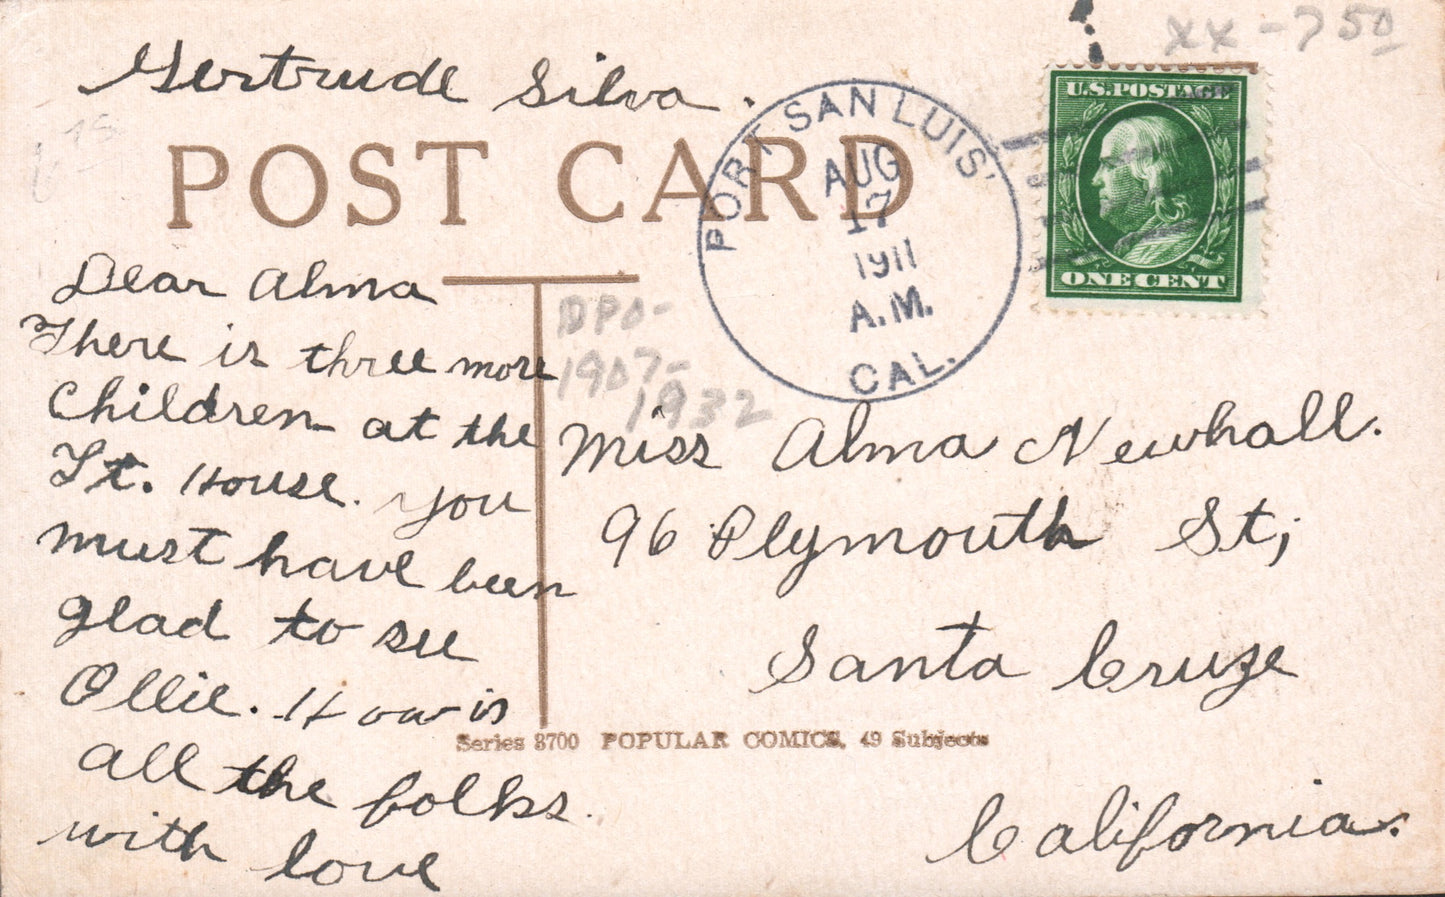 Gertrude Silva.
xx-750
POST CARD
PORT SAN LUIS'
AUG
17
1911
A.M.
CAL.
U.S. POSTAGE
ONE CENT
DPO-
1907-
1932
Dear Alma
There is three more
Children at the
Lt. House. You
must have been
glad to see
Ollie. How is
all the folks.
with love
Miss Alma Newhall.
96 Plymouth St;
Santa Cruze
California.
Series 3700 POPULAR COMICS, 49 Subjects